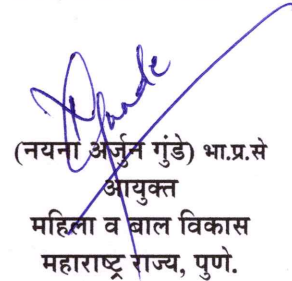 (नयना अर्जुन गुंडे) भा.प्र.से
आयुक्त
महिला व बाल विकास
महाराष्ट्र राज्य, पुणे.